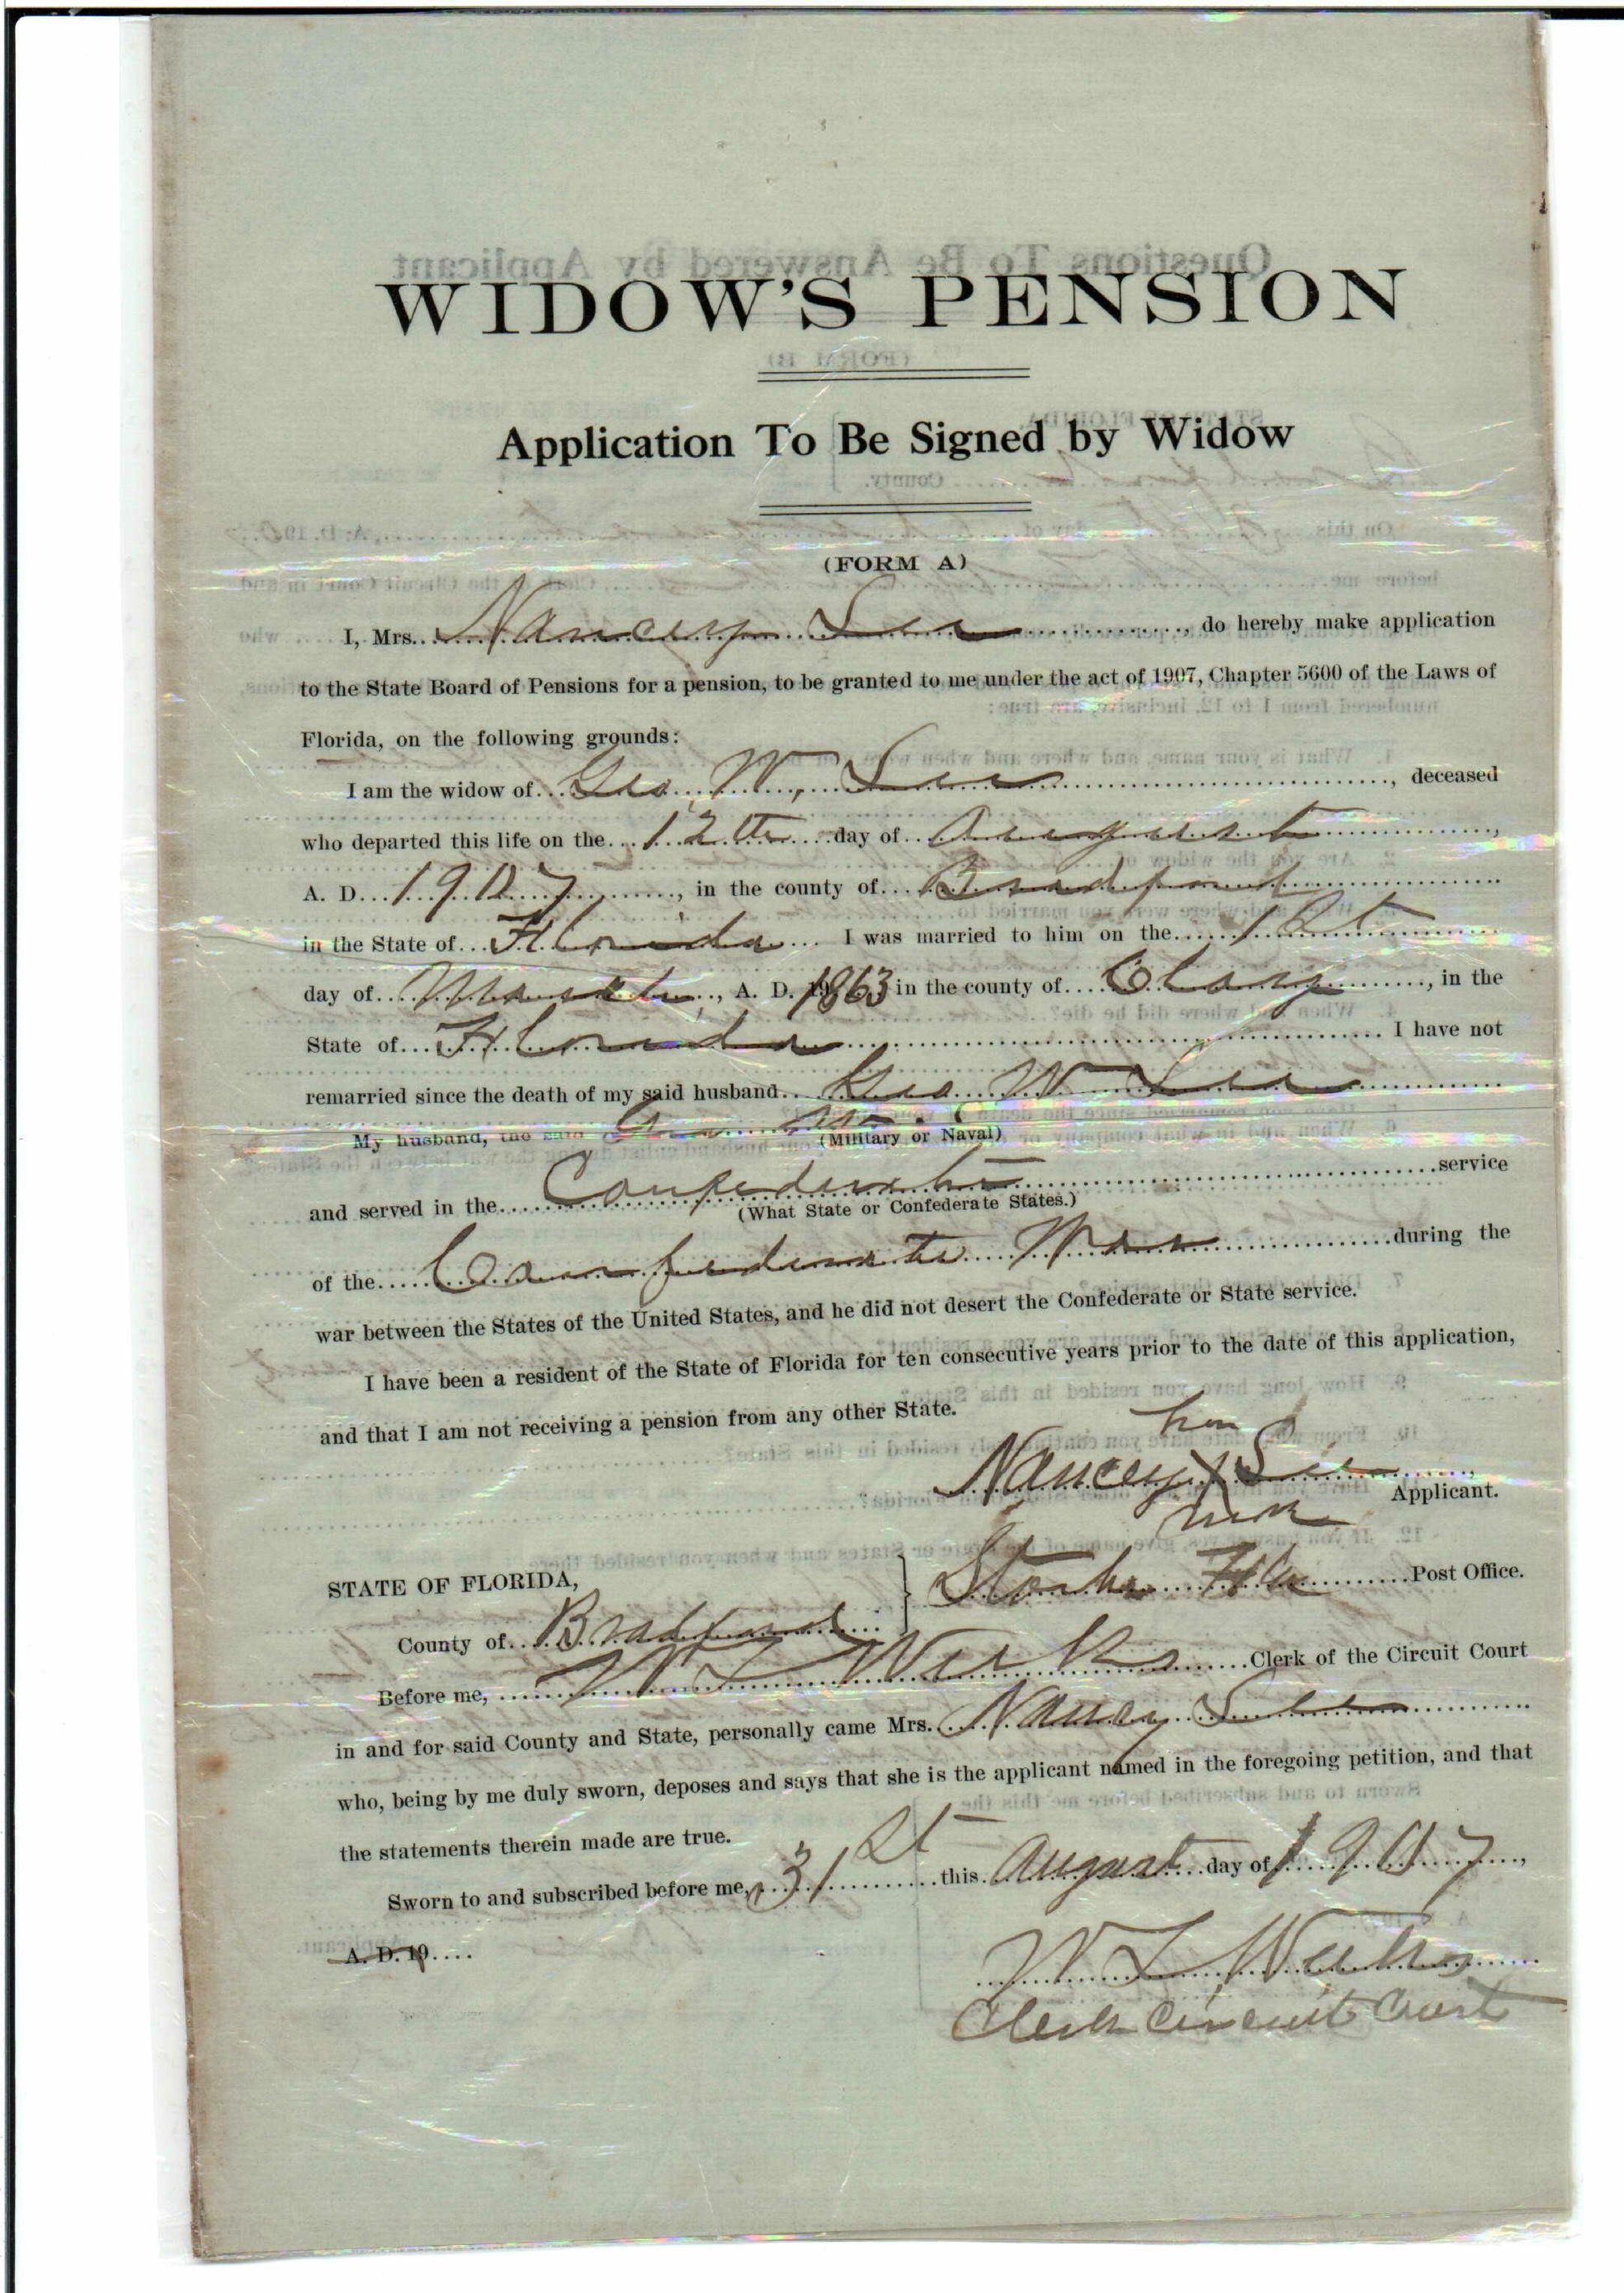 WIDOW'S PENSION
Application To Be Signed by Widow
(FORM A)
I, Mrs. Nancy Lee, do hereby make application
to the State Board of Pensions for a pension, to be granted to me under the act of 1907, Chapter 5600 of the Laws of
Florida, on the following grounds:
I am the widow of Geo. W. Lee, deceased
who departed this life on the 12th day of August,
A. D. 1907, in the county of Bradford
in the State of Florida I was married to him on the 1st
day of March, A. D. 1863 in the county of Clay, in the
State of Florida I have not
remarried since the death of my said husband Geo W Lee
My husband, the said Geo W.
(Military or Naval)
and served in the Confederate service
(What State or Confederate States.)
of the Confederate War during the
war between the States of the United States, and he did not desert the Confederate or State service.
I have been a resident of the State of Florida for ten consecutive years prior to the date of this application,
and that I am not receiving a pension from any other State.
her
Nancy X Lee
Applicant.
mark
STATE OF FLORIDA,
Starke Fla Post Office.
County of Bradford
Before me, Clerk of the Circuit Court
in and for said County and State, personally came Mrs. Nancy Lee
who, being by me duly sworn, deposes and says that she is the applicant named in the foregoing petition, and that
the statements therein made are true.
Sworn to and subscribed before me, 31st this August day of 1907,
A. D. 19
Clerk Circuit Court